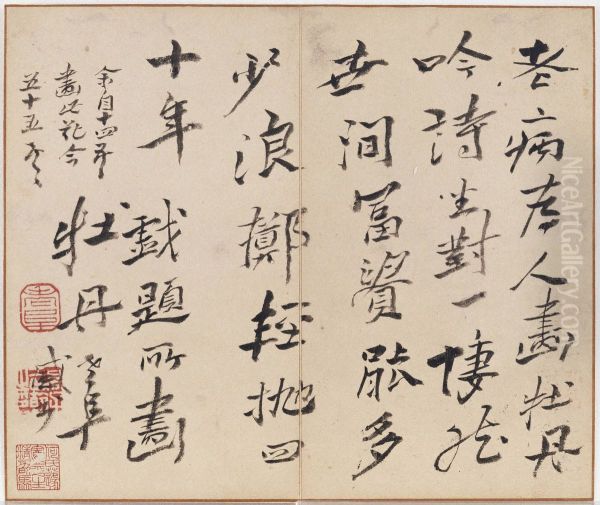 老病為人畫牡丹
吟詩坐對一悽然
世間冨資能多
少浪擲輕拋四
十年
余自十四五
畫此花今
五十五矣
戲題所畫
牡丹老阜
NiceArtGallery.com